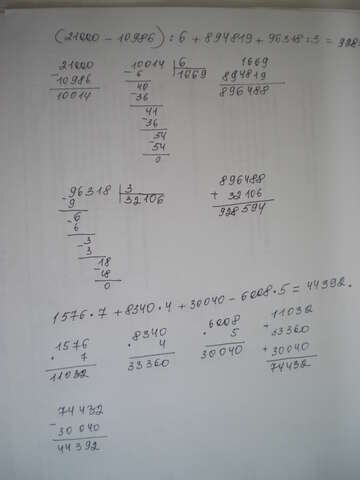 (21000 - 10986) : 6 + 894819 + 96318 : 3 = 928
21000
- 10986
10014
10014 | 6
- 6 1669
40
- 36
41
- 36
54
- 54
0
1669
894819
896488
- 96318 | 3
9 32106
- 6
6
- 3
3
18
- 18
0
896488
+ 32106
928594
1576 · 7 + 8340 · 4 + 30040 - 6008 · 5 = 44392.
1576
· 7
11032
8340
· 4
33360
6008
· 5
30040
11032
+ 33360
+ 30040
74432
74432
- 30040
44392